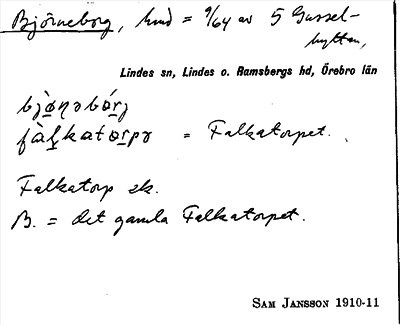 Björneborg, hmd = 9/64 av 5 Gussel-
hyttan,
Lindes sn, Lindes o. Ramsbergs hd, Örebro län
bjö̀ṇəbórj
fàḷkatơrpə = Falkatorpet.
Falkatorp ek.
B. = det gamla Falkatorpet.
SAM JANSSON 1910-11